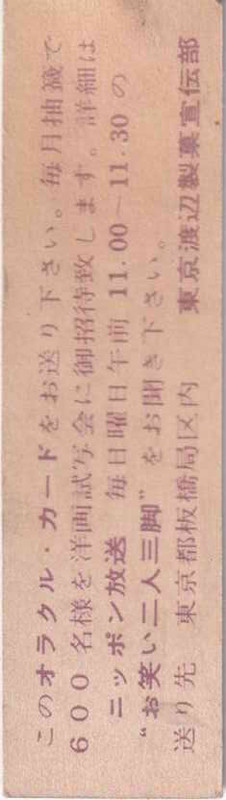 このオラクル・カードをお送り下さい。毎月抽籤で
600名様を洋画試写会に御招待致します。詳細は
ニッポン放送　毎日曜日午前11.00～11.30の
“お笑い二人三脚”をお聞き下さい。
送り先　東京都板橋局区内　東京渡辺製菓宣伝部